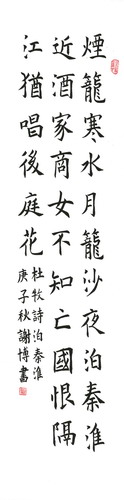 煙籠寒水月籠沙夜泊秦淮
近酒家商女不知亡國恨隔
江猶唱後庭花
杜牧詩泊秦淮
庚子秋謝博書